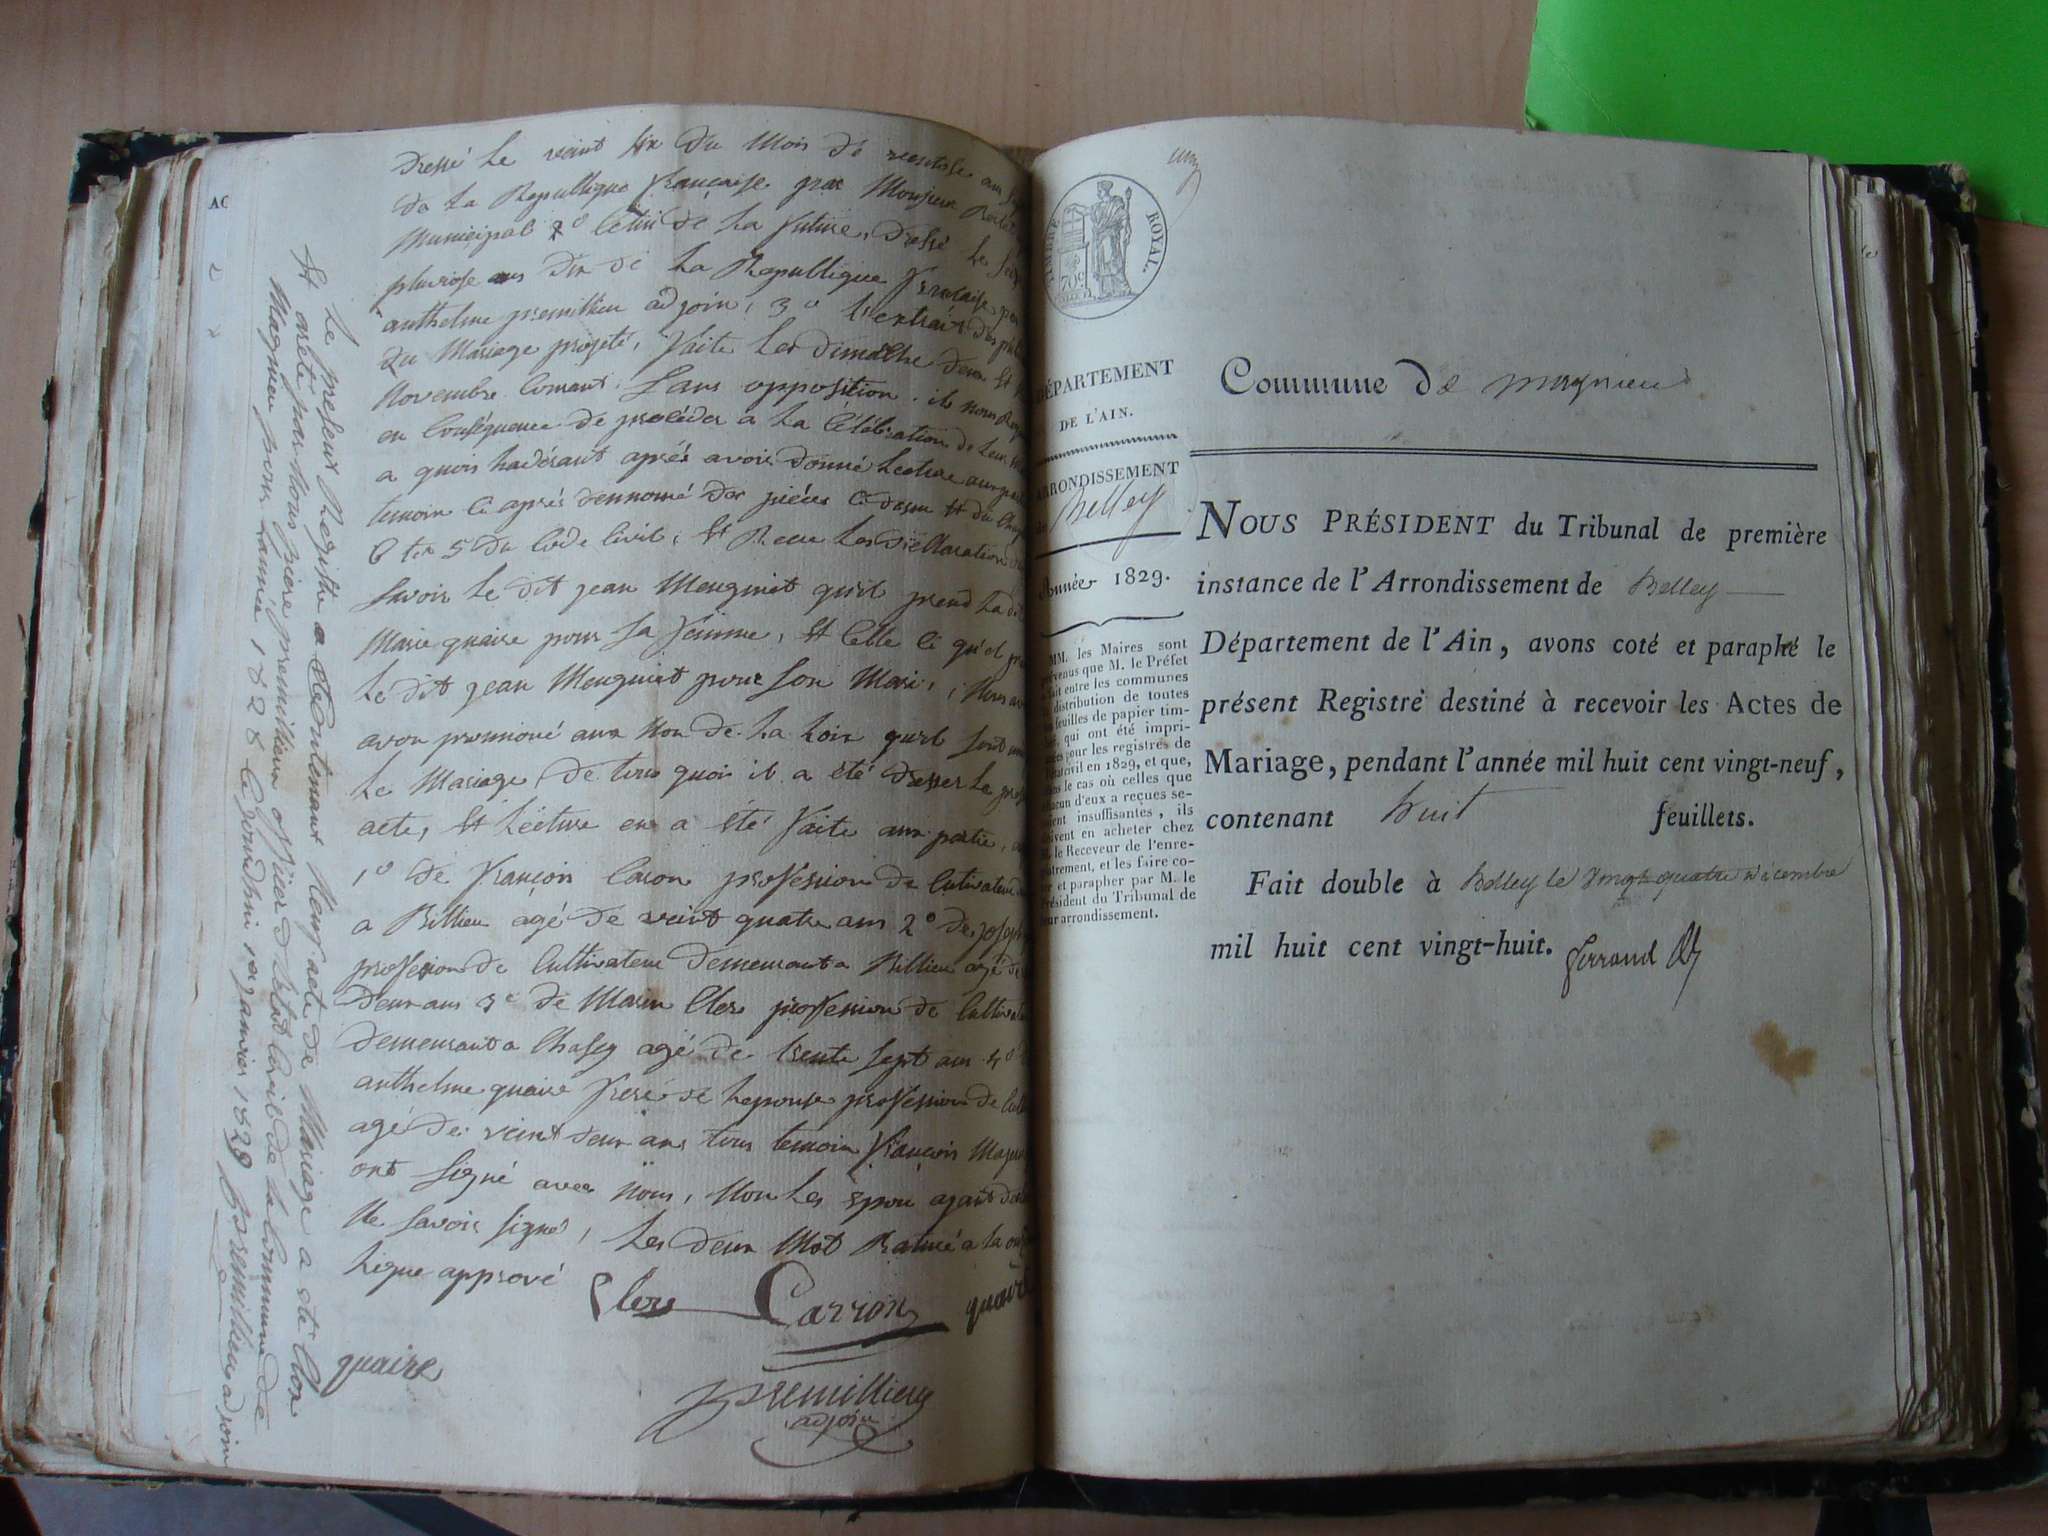 AC
dressé Le veint six du Mois de ventose an
de La Republique française par Monsieur
Municipal 2º Celui de La future, dressé Le
pluviose ans dix de La Republique francaise
anthelme premillieu adjoin, 3º L'extrait des
du Mariage projeté, faite Les dimalche deux Et
Novembre Courant. Sans opposition. ils nous
en Conséquence de proceder a La Célébration de Leur
a quois hadérant aprés avoir donné Lecture aux
temoin Ci aprés dennomé des piéces Ci dessu Et du
6 ter 5 du Code Civil, Et Recu Les déClaration
Savoir Le dit jean Meuginet qu'il prend La
Marie quaire pour Sa féimme, Et Celle Ci qu'el
Le dit jean Meuginet pour Son Mari, Nous
avon prononcé aux Non de La Loix qu'il Sont
Le Mariage, de tous quois il a été dresser Le
acte, Et Lécture en a été faite aux partie,
1º de françoin Caron proféssion de Cultivateur
a Billieu agé de veint quatre ans 2º de joseph
proféssion de Cultivateur demeurant a Billieu agé de
deux ans 3e de Marin Cler proféssion de
demeurant a Chasey agé de trente Sept ans 4º
anthelme quaire frere de Lepouse proféssion de
agé de veint deux ans tous temoin françoin
ont Signé avec Nous, Non Les Epou ayant
Ne Savoir Signé, Les deux Mot Raturé a la
Ligne apprové
Clerc Carron quaire
quaire
premillieux
adjoin
Le présent Registre a Contenant Neuf acte de Mariage a été Clos
Et arété par Nous piere premillieux officier de l'état Civil de la Commune de
Magnieu pour l'année 1828 Ce jourdhui janvier 1829 premillieux adjoin
TIMBRE ROYAL.
70c
DÉPARTEMENT
DE L'AIN.
ARRONDISSEMENT
de Belley
Année 1829.
MM. les Maires sont
prévenus que M. le Préfet
fait entre les communes
la distribution de toutes
les feuilles de papier tim-
bré, qui ont été impri-
mées pour les registres de
l'état civil en 1829, et que,
dans le cas où celles que
chacun d'eux a reçues se-
roient insuffisantes, ils
doivent en acheter chez
M. le Receveur de l'enre-
gistrement, et les faire co-
ter et parapher par M. le
Président du Tribunal de
leur arrondissement.
Commune De magnieu
NOUS PRÉSIDENT du Tribunal de première
instance de l'Arrondissement de Belley
Département de l'Ain, avons coté et paraphé le
présent Registre destiné à recevoir les Actes de
Mariage, pendant l'année mil huit cent vingt-neuf,
contenant huit feuillets.
Fait double à Belley le vingt quatre décembre
mil huit cent vingt-huit. ferrand